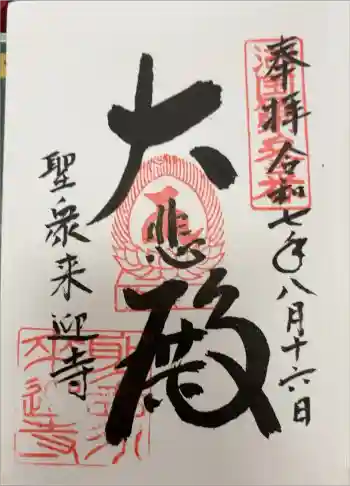 奉拝 令和七年八月十六日
大悲殿
聖衆来迎寺